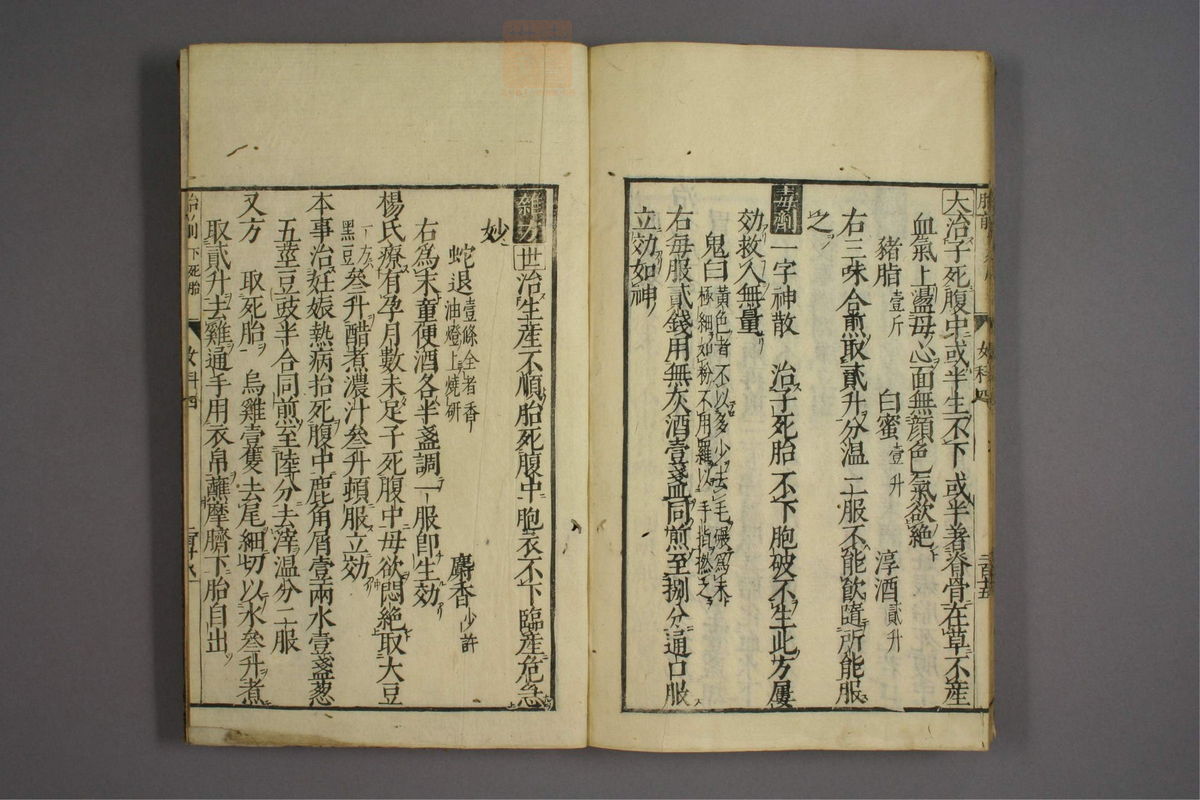 大治子死腹中或半生不下或半著脊骨在草不産
血氣上盪母心面無顔色氣欲絶
豬脂壹斤　白蜜壹升　淳酒貳升
右三味合煎取貳升分温二服不能飲隨所能服
之
毒劑一字神散　治子死胎不下胞破不生此方屢
効救人無量
鬼臼黃色者不以多少去毛碾爲末
極細如粉不用羅以手指撚之
右毎服貳錢用無灰酒壹盞同煎至捌分通口服
立効如神
雜方世治生産不順胎死腹中胞衣不下臨産危急
妙
蛇退壹條全者香
油燈上燒研　麝香少許
右爲末童便酒各半盞調一服卽生効
楊氏療有孕月數未足子死腹中母欲悶絶取大豆
一方
黑豆叁升醋煮濃汁叁升頓服立効
本事治妊娠熱病抬死腹中鹿角屑壹兩水壹盞葱
五莖豆豉半合同煎至陸分去滓温分二服
又方　取死胎　烏雞壹隻去尾細切以水叁升煮
取貳升去雞通手用衣帛蘸摩臍下胎自出
下死胎　女科四